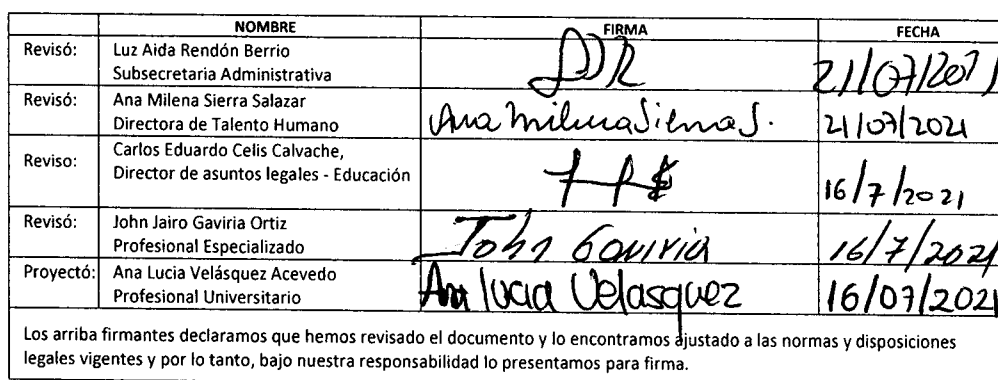 NOMBRE FIRMA FECHA
Revisó: Luz Aida Rendón Berrio
Subsecretaria Administrativa 21/07/2021
Revisó: Ana Milena Sierra Salazar
Directora de Talento Humano Ana Milena Sierra S. 21/07/2021
Reviso: Carlos Eduardo Celis Calvache,
Director de asuntos legales - Educación 16/7/2021
Revisó: John Jairo Gaviria Ortiz
Profesional Especializado John Gaviria 16/7/2021
Proyectó: Ana Lucia Velásquez Acevedo
Profesional Universitario Ana lucia Velasquez 16/07/2021
Los arriba firmantes declaramos que hemos revisado el documento y lo encontramos ajustado a las normas y disposiciones
legales vigentes y por lo tanto, bajo nuestra responsabilidad lo presentamos para firma.